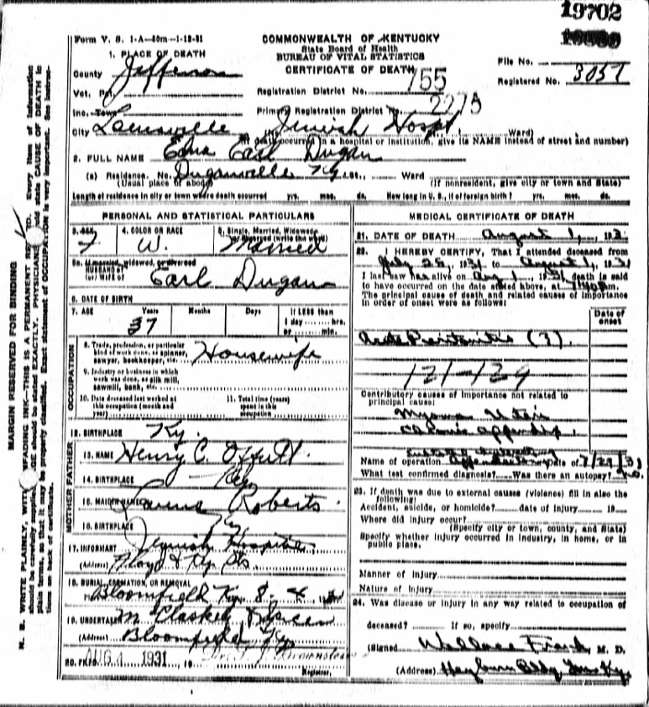 19702
Form V. S. 1-A—50m—1-12-31
COMMONWEALTH OF KENTUCKY
State Board of Health
BUREAU OF VITAL STATISTICS
CERTIFICATE OF DEATH
File No.
Registered No. 3057
1. PLACE OF DEATH
County Jefferson
Vot. Pct.
Registration District No. 755
Inc. Town
Primary Registration District No. 2275
City Louisville
Jewish Hospt. Ward)
(If death occurred in a hospital or institution, give its NAME instead of street and number)
2. FULL NAME Edna Earl Dugan
(a) Residence. No. Duganville Ky St., Ward
(Usual place of abode)
(If nonresident, give city or town and State)
Length of residence in city or town where death occurred yrs. mos. ds. How long in U. S., if of foreign birth? yrs. mos. ds.
PERSONAL AND STATISTICAL PARTICULARS
3. SEX
F
4. COLOR OR RACE
W.
5. Single, Married, Widowed
Married
5a. If married, widowed, or divorced
HUSBAND of
(or) WIFE of
Earl Dugan
6. DATE OF BIRTH
7. AGE Years Months Days If LESS than
1 day hrs.
or min.
37
OCCUPATION
8. Trade, profession, or particular
kind of work done, as spinner,
sawyer, bookkeeper, etc.
Housewife
9. Industry or business in which
work was done, as silk mill,
sawmill, bank, etc.
10. Date deceased last worked at
this occupation (month and
year)
11. Total time (years)
spent in this
occupation
12. BIRTHPLACE Ky.
MOTHER FATHER
13. NAME Henry C. Offutt.
14. BIRTHPLACE Ky
15. MAIDEN NAME Roberts
16. BIRTHPLACE Ky
17. INFORMANT Jewish Hospital
(Address) Floyd & Ky Sts
18. BURIAL, CREMATION, OR REMOVAL
Bloomfield Ky. 8-4
19. UNDERTAKER
(Address) Bloomfield Ky
20. FILED AUG 4 1931, 19
Registrar.
MEDICAL CERTIFICATE OF DEATH
21. DATE OF DEATH August 1, 193
22. I HEREBY CERTIFY, That I attended deceased from
July 22, 1931 to August 1, 1931
I last saw her alive on Aug 1, 1931 death is said
to have occurred on the date stated above, at m.
The principal cause of death and related causes of importance
in order of onset were as follows:
Date of
onset
Acute Peritonitis (?).
121-129
Contributory causes of importance not related to
principal cause:
Myoma Uteri
Chronic appendix.
Name of operation Date of 7/29/31
What test confirmed diagnosis? Was there an autopsy? no.
23. If death was due to external causes (violence) fill in also the
following:
Accident, suicide, or homicide? date of injury 19
Where did injury occur?
(Specify city or town, county, and State)
Specify whether injury occurred in industry, in home, or in
public place.
Manner of injury
Nature of injury
24. Was disease or injury in any way related to occupation of
deceased? If so, specify
(Signed Wallace Frank M. D.
(Address) Heyburn Bldg Lou Ky.
MARGIN RESERVED FOR BINDING